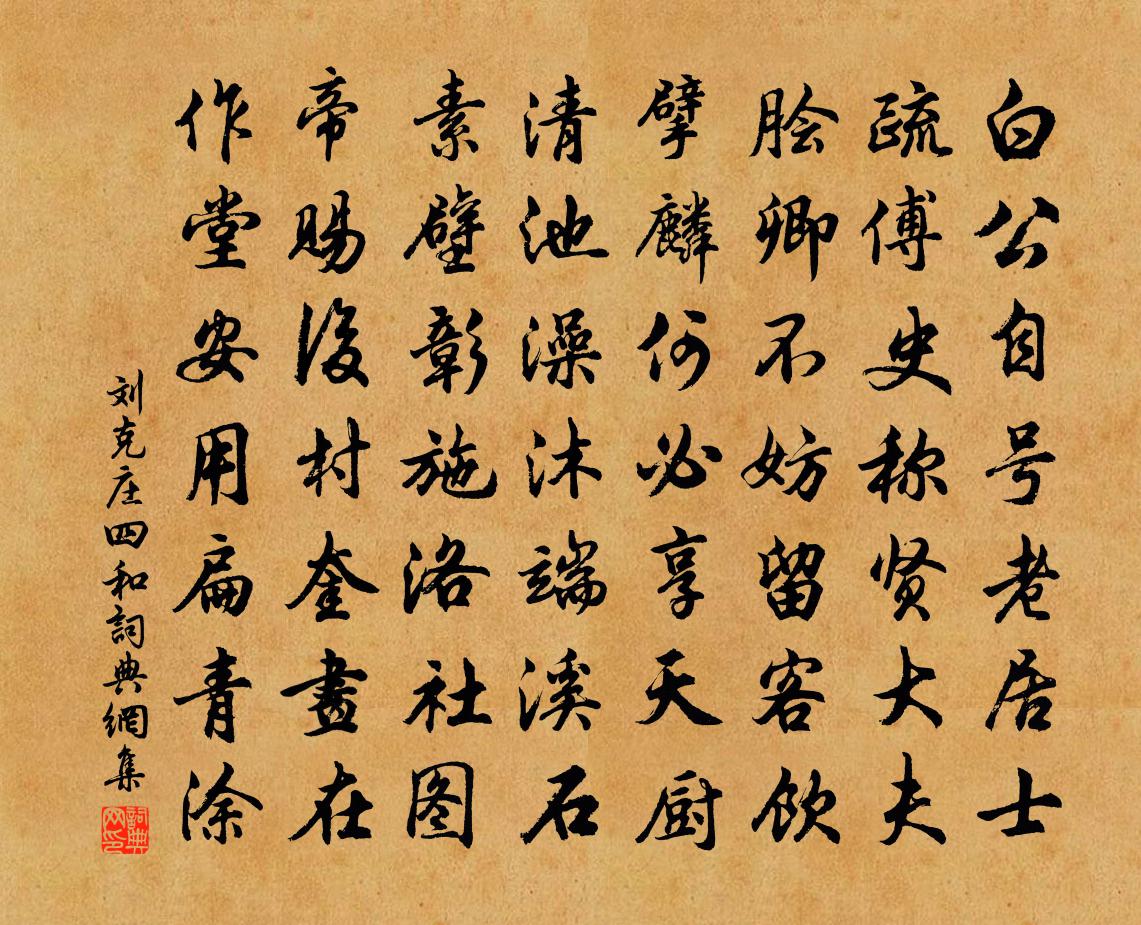 白公自号老居士
疏傅史称贤大夫
脍卿不妨留客饮
擘麟何必享天厨
清池澡沐端溪石
素壁彰施洛社图
帝赐後村奎畫在
作堂安用扁青涂
刘克庄四和詞典網集
詞典网印